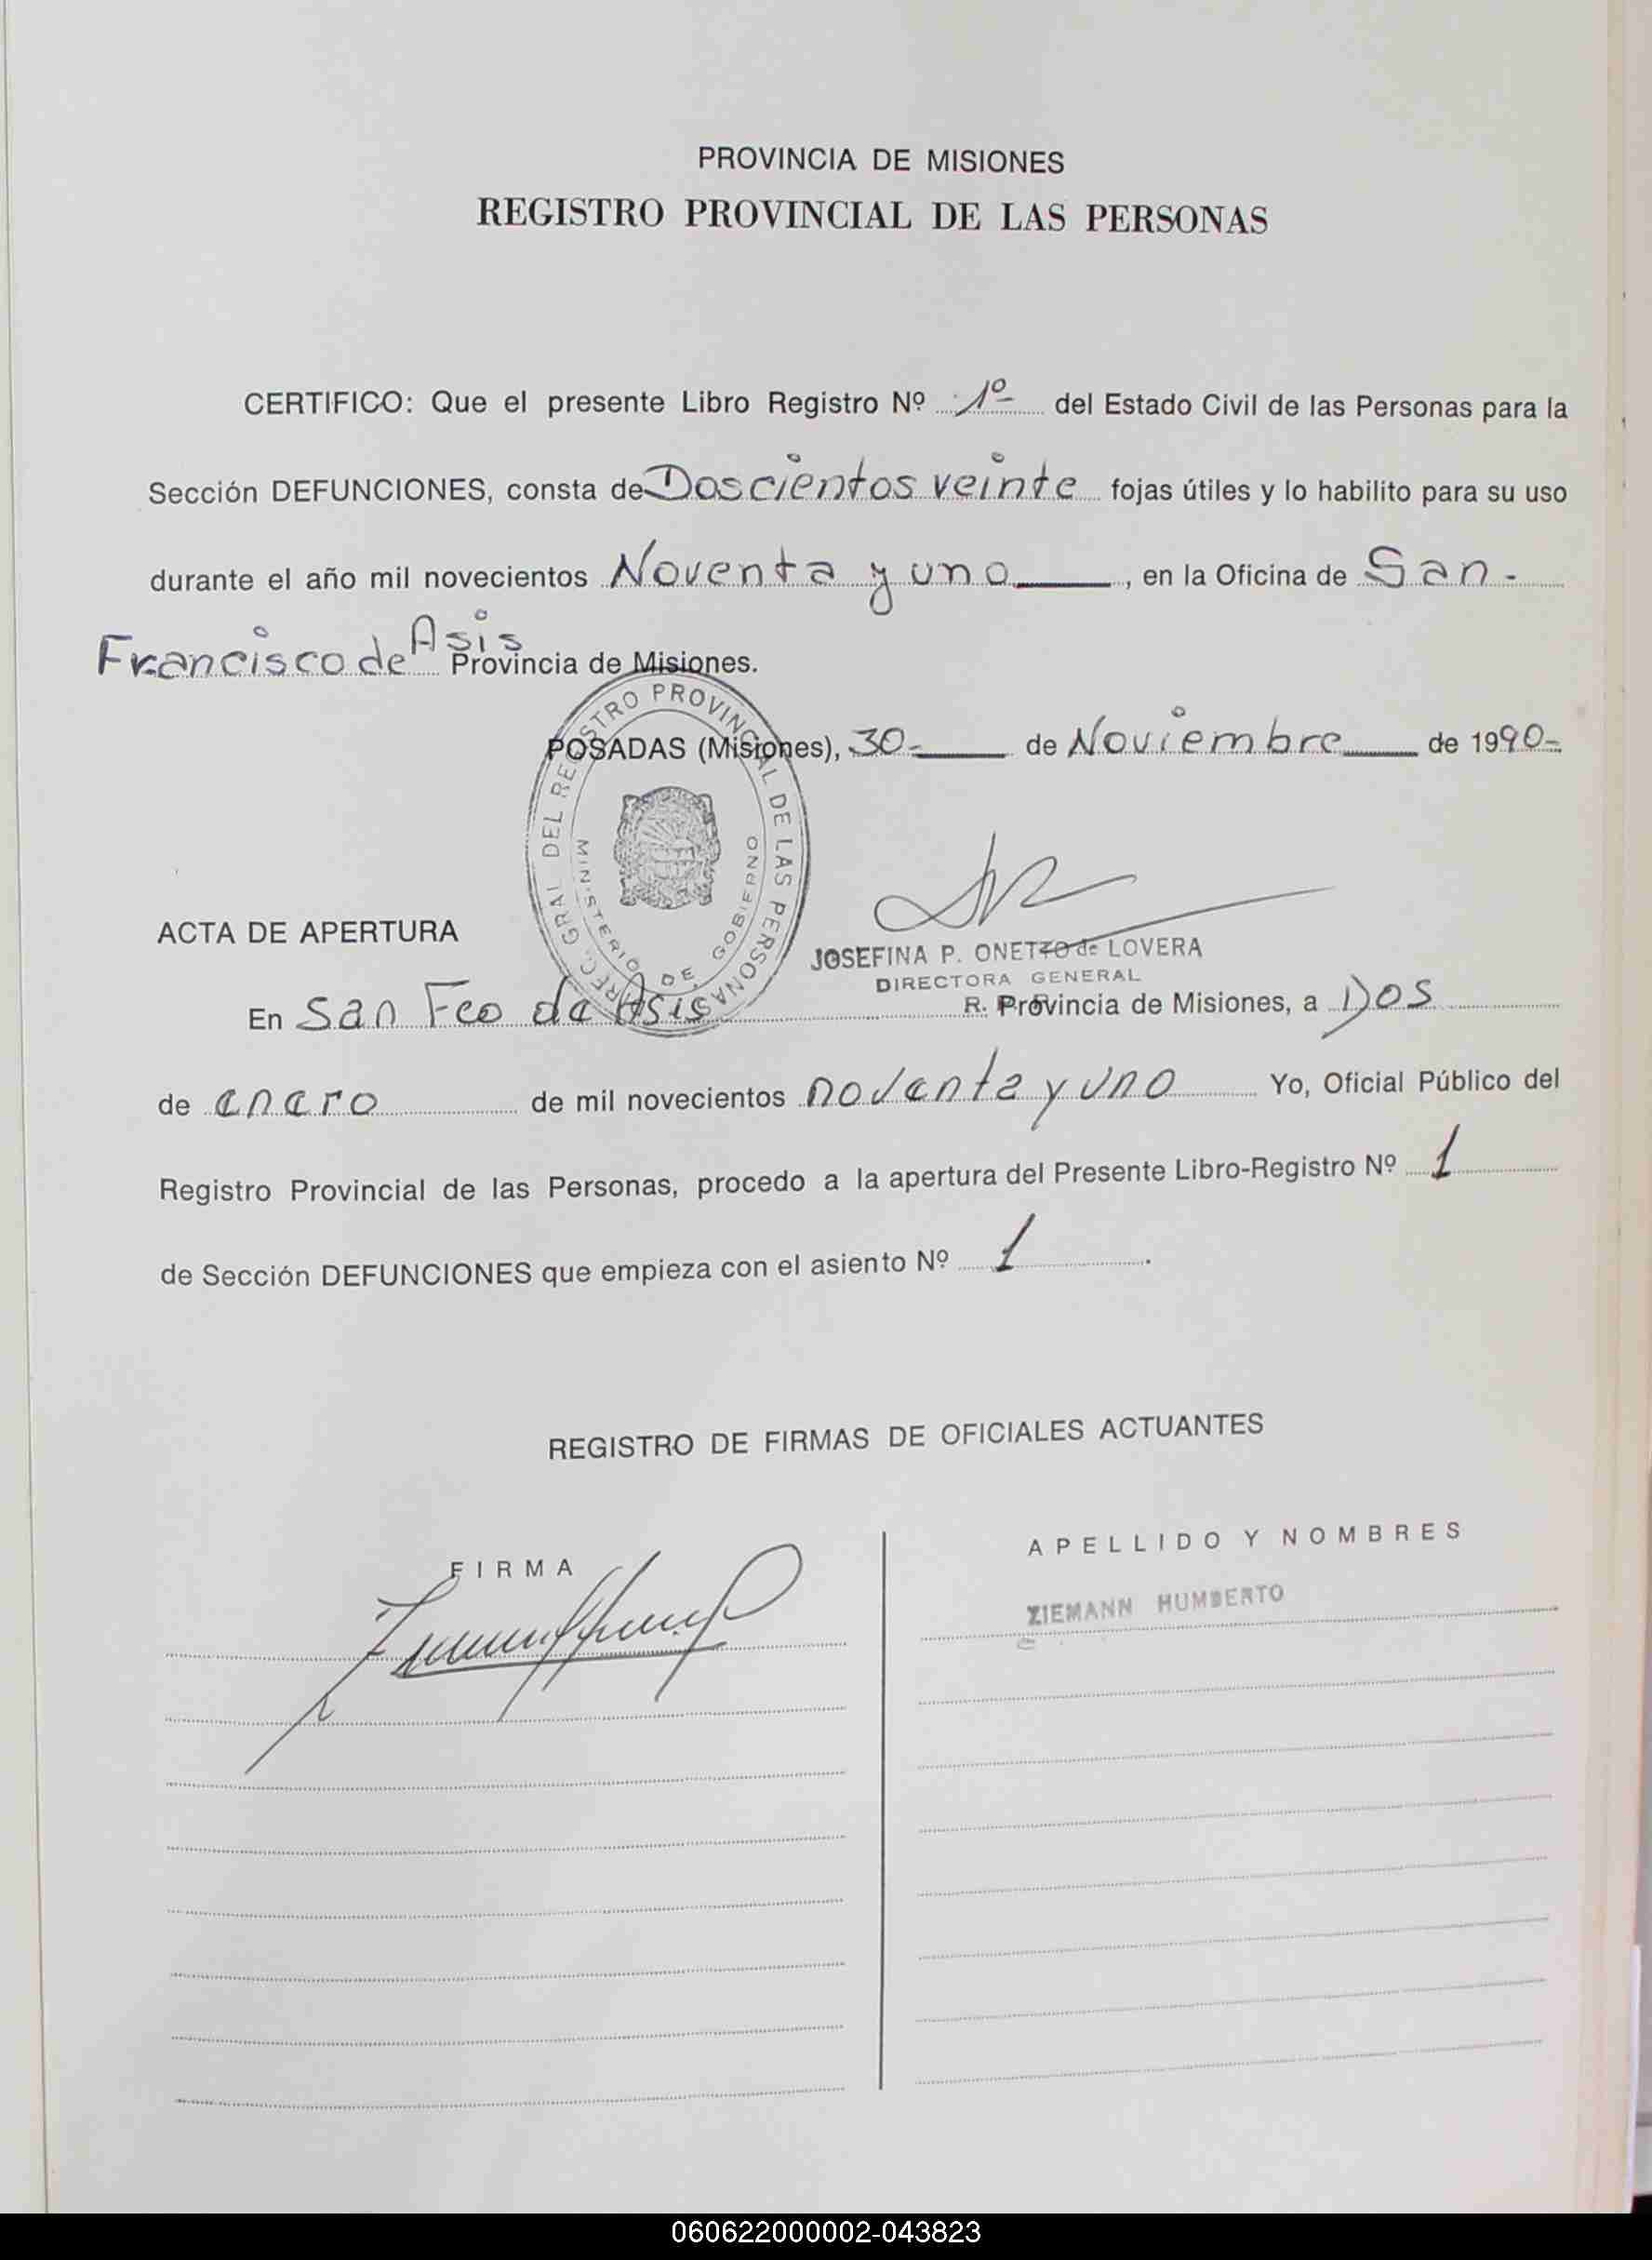 PROVINCIA DE MISIONES
REGISTRO PROVINCIAL DE LAS PERSONAS
CERTIFICO: Que el presente Libro Registro Nº 1º del Estado Civil de las Personas para la
Sección DEFUNCIONES, consta de Doscientos veinte fojas útiles y lo habilito para su uso
durante el año mil novecientos Noventa y uno, en la Oficina de San-
Francisco de Asis Provincia de Misiones.
POSADAS (Misiones), 30- de Noviembre de 1990-
REG. GRAL. DEL REGISTRO PROVINCIAL DE LAS PERSONAS
MINISTERIO DE GOBIERNO
JOSEFINA P. ONETTO de LOVERA
DIRECTORA GENERAL
ACTA DE APERTURA
En San Fco de Asis R. Provincia de Misiones, a Dos
de enero de mil novecientos noventa y uno Yo, Oficial Público del
Registro Provincial de las Personas, procedo a la apertura del Presente Libro-Registro Nº 1
de Sección DEFUNCIONES que empieza con el asiento Nº 1.
REGISTRO DE FIRMAS DE OFICIALES ACTUANTES
FIRMA
APELLIDO Y NOMBRES
ZIEMANN HUMBERTO
060622000002-043823